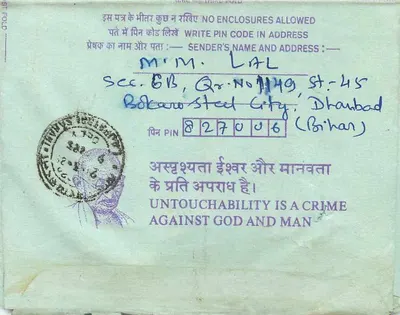 इस पत्र के भीतर कुछ न रखिए NO ENCLOSURES ALLOWED
पते में पिन कोड लिखें WRITE PIN CODE IN ADDRESS
प्रेषक का नाम और पता :— SENDER'S NAME AND ADDRESS :—
M.M. LAL
Sec. 6B, Qr. No 1149, St.-45
Bokaro Steel City, Dhanbad
(Bihar)
पिन PIN 827006
अस्पृश्यता ईश्वर और मानवता
के प्रति अपराध है।
UNTOUCHABILITY IS A CRIME
AGAINST GOD AND MAN